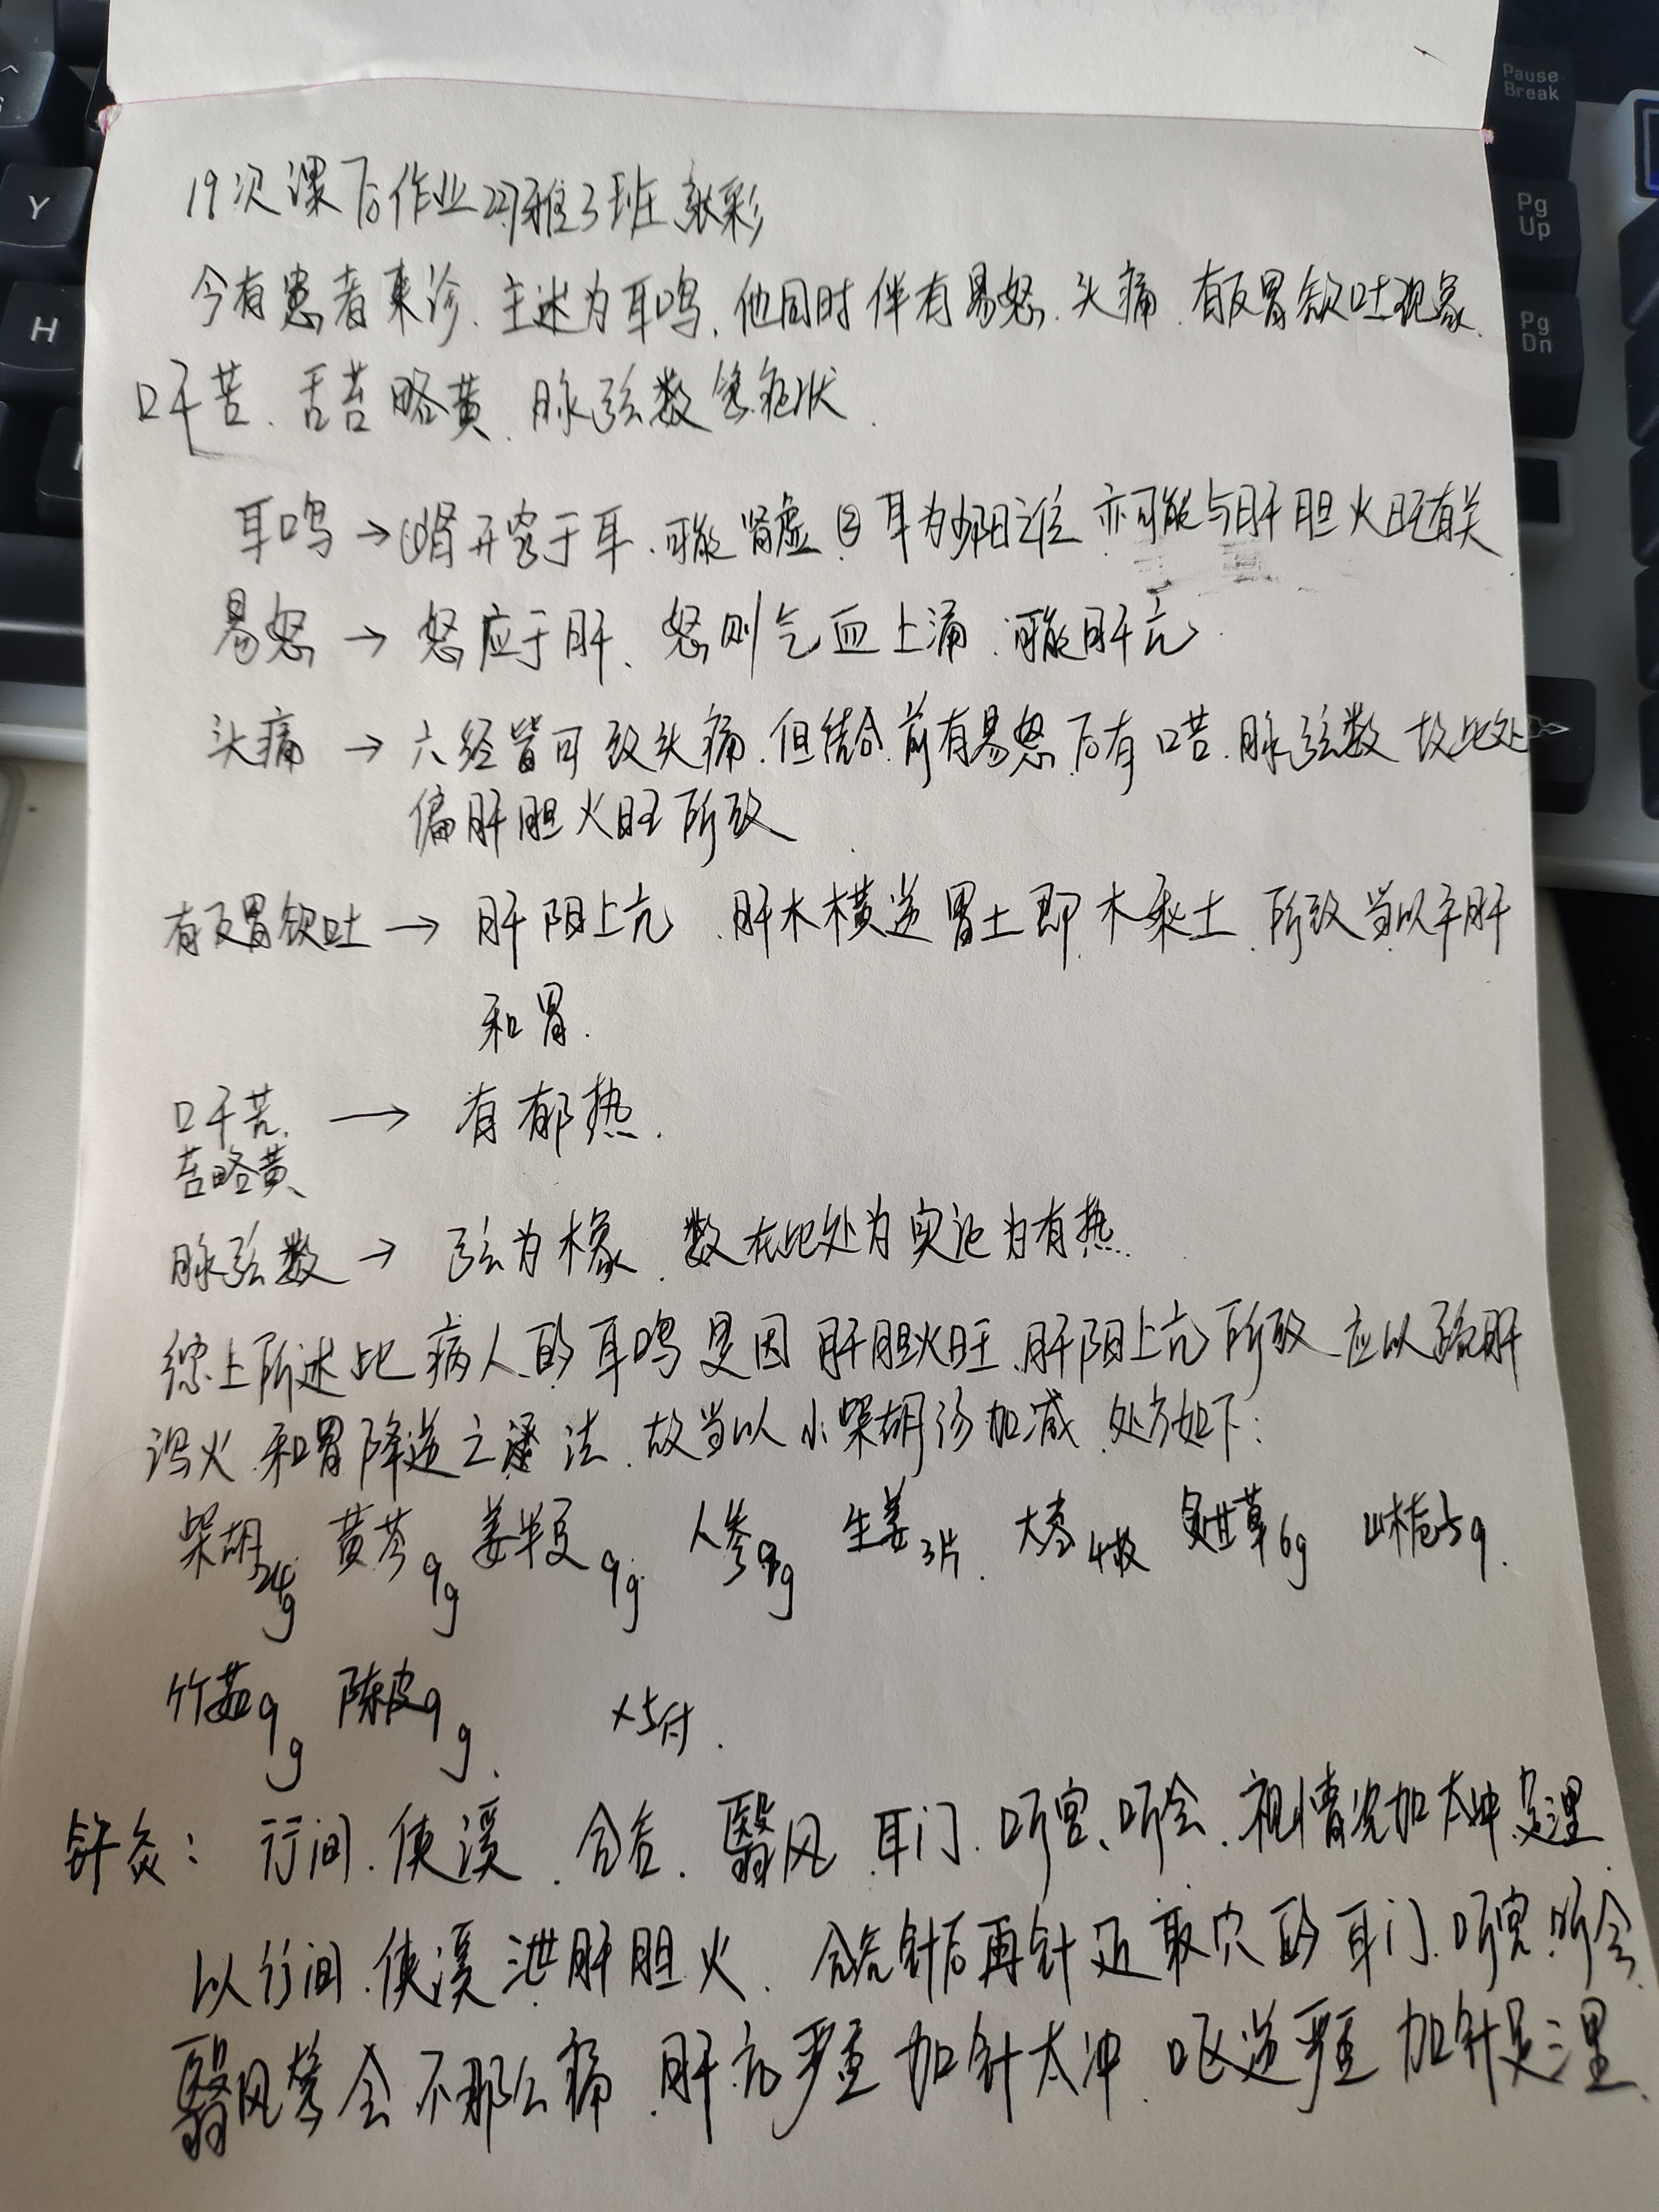 19次课后作业 227雅3班 张彩
今有患者来诊、主述为耳鸣、他同时伴有易怒、头痛、有反胃欲吐现象、
口干苦、舌苔略黄、脉弦数等症状.
耳鸣→①肾开窍于耳、可能肾虚 ②耳为少阳之位 亦可能与肝胆火旺有关
易怒→怒应于肝、怒则气血上涌、可能肝亢.
头痛→六经皆可致头痛.但结合前有易怒后有口苦.脉弦数 故此处
偏肝胆火旺所致.
有反胃欲吐→肝阳上亢、肝木横逆胃土即木乘土、所致当以平肝
和胃.
口干苦.→有郁热.
苔略黄、
脉弦数→弦为木象、数在此处为实证为有热.
综上所述此病人的耳鸣是因肝胆火旺、肝阳上亢所致 应以疏肝
泻火、和胃降逆之法、故当以小柴胡汤加减、处方如下:
柴胡24g 黄芩9g 姜半夏9g 人参9g 生姜3片 大枣4枚 炙甘草6g 山栀5g.
竹茹9g 陈皮9g. ×5付.
针灸: 行间、侠溪、合谷、翳风、耳门、听宫、听会、视情况加太冲、足三里.
以行间、侠溪泄肝胆火、合谷针后再针近取穴的耳门、听宫、听会、
翳风等会不那么痛、肝亢严重加针太冲、呕逆严重加针足三里、
Pause
Break
Pg
Up
Pg
Dn
Y
H